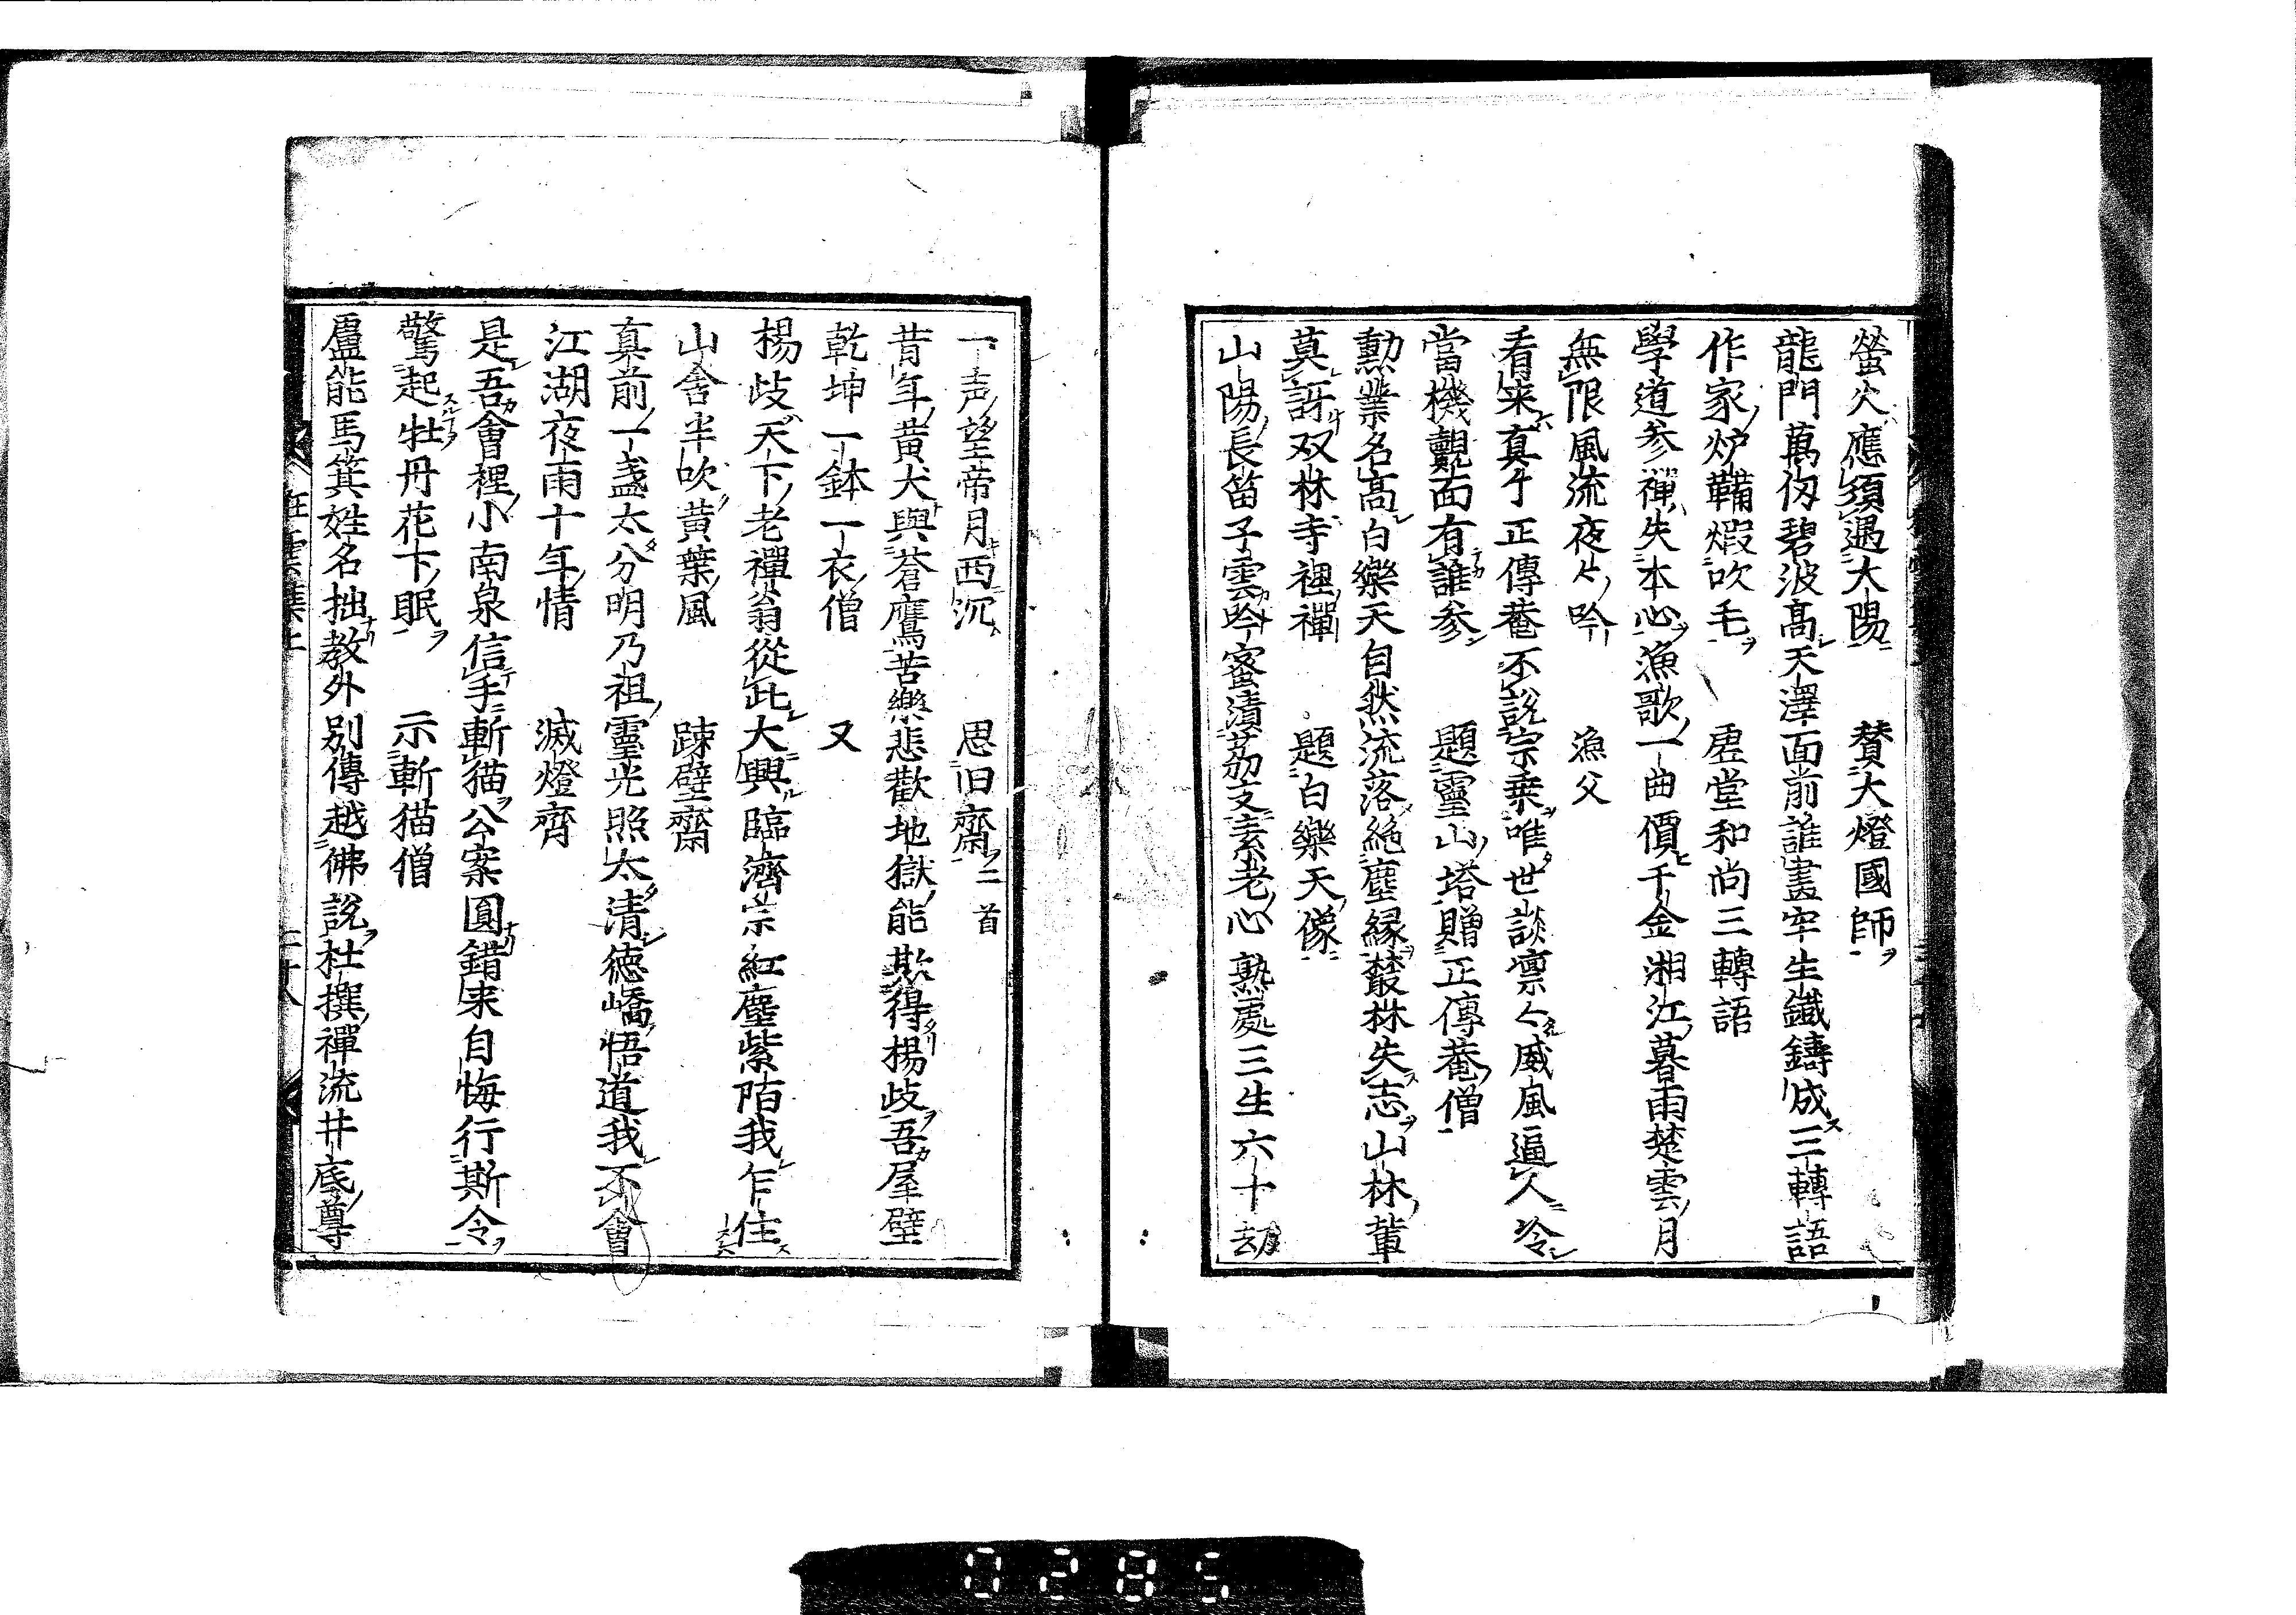 螢火應須遇大陽　賛大燈國師
龍門萬仭碧波高天澤面前誰畫牢生鐵鑄成三轉語
作家炉鞴煆吹毛　虗堂和尚三轉語
學道参禪失本心漁歌一曲價千金湘江暮雨楚雲月
無限風流夜〻吟　漁父
看来真个正傳菴不説宗乗唯世談凛〻威風逼人冷
當機覿面有誰参　題靈山塔贈正傳菴僧
勲業名高白樂天自然流落絶塵縁叢林失志山林輩
莫訝双林寺裡禪　題白樂天像
山陽長笛子雲吟蜜漬茘支素老心熟處三生六十劫
一声望帝月西沉　思旧齋二首
昔年黄犬與蒼鷹苦樂悲歡地獄能欺得楊歧吾屋壁
乾坤一鉢一衣僧　又
楊歧天下老禪翁從此大興臨濟宗紅塵紫陌我乍住
山舎半吹黄葉風　踈壁齋
真前一盞太分明乃祖靈光照太清徳嶠悟道我不會
江湖夜雨十年情　滅燈齊
是吾會裡小南泉信手斬猫公案圓錯来自悔行斯令
驚起牡丹花下眠　示斬猫僧
盧能馬箕姓名拙教外別傳越佛説杜撰禪流井底尊
狂雲集上
0285